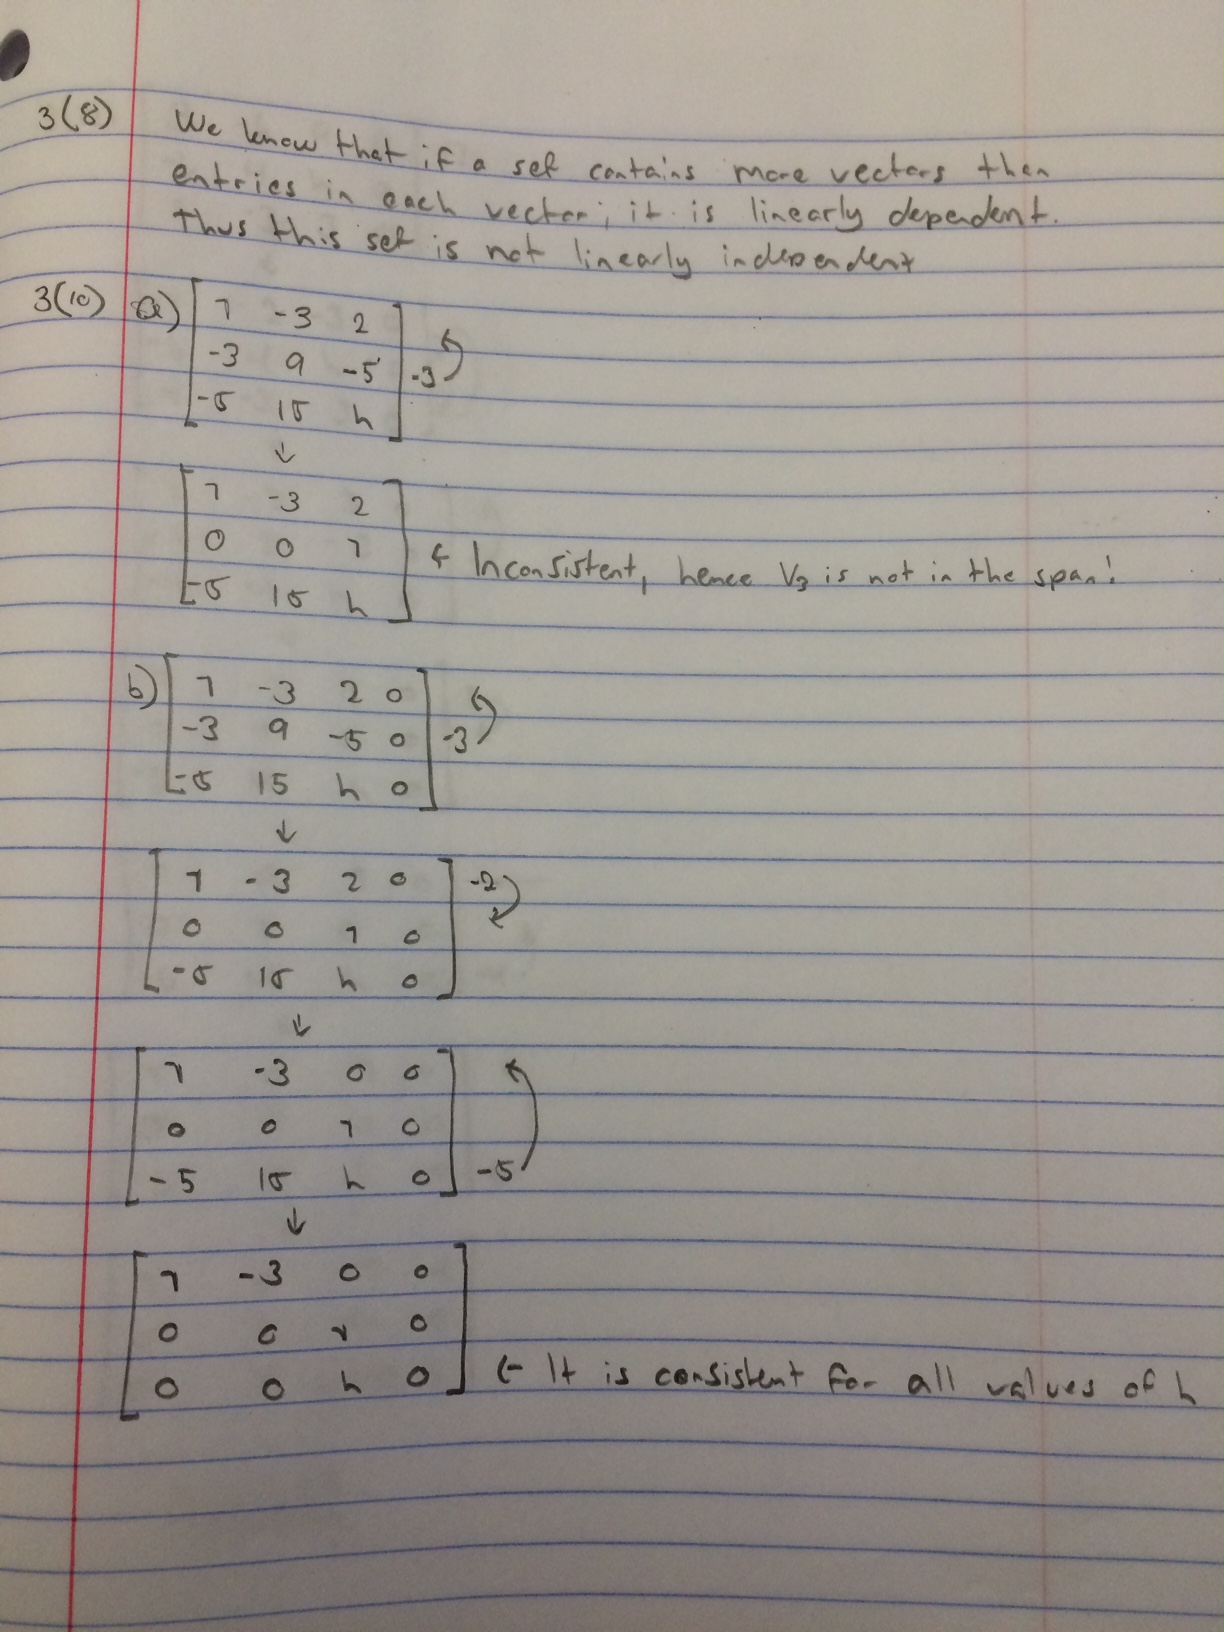 3(8) We know that if a set contains more vectors then
entries in each vector; it is linearly dependent.
Thus this set is not linearly independent
3(10) a) 1 -3 2
-3 9 -5 -3
-5 15 h
↓
1 -3 2
0 0 1
-5 15 h
← Inconsistent, hence V₃ is not in the span!
b) 1 -3 2 0
-3 9 -5 0 -3
-5 15 h 0
↓
1 -3 2 0 -2
0 0 1 0
-5 15 h 0
↓
1 -3 0 0
0 0 1 0
-5 15 h 0 -5
↓
1 -3 0 0
0 0 1 0
0 0 h 0
← It is consistent for all values of h